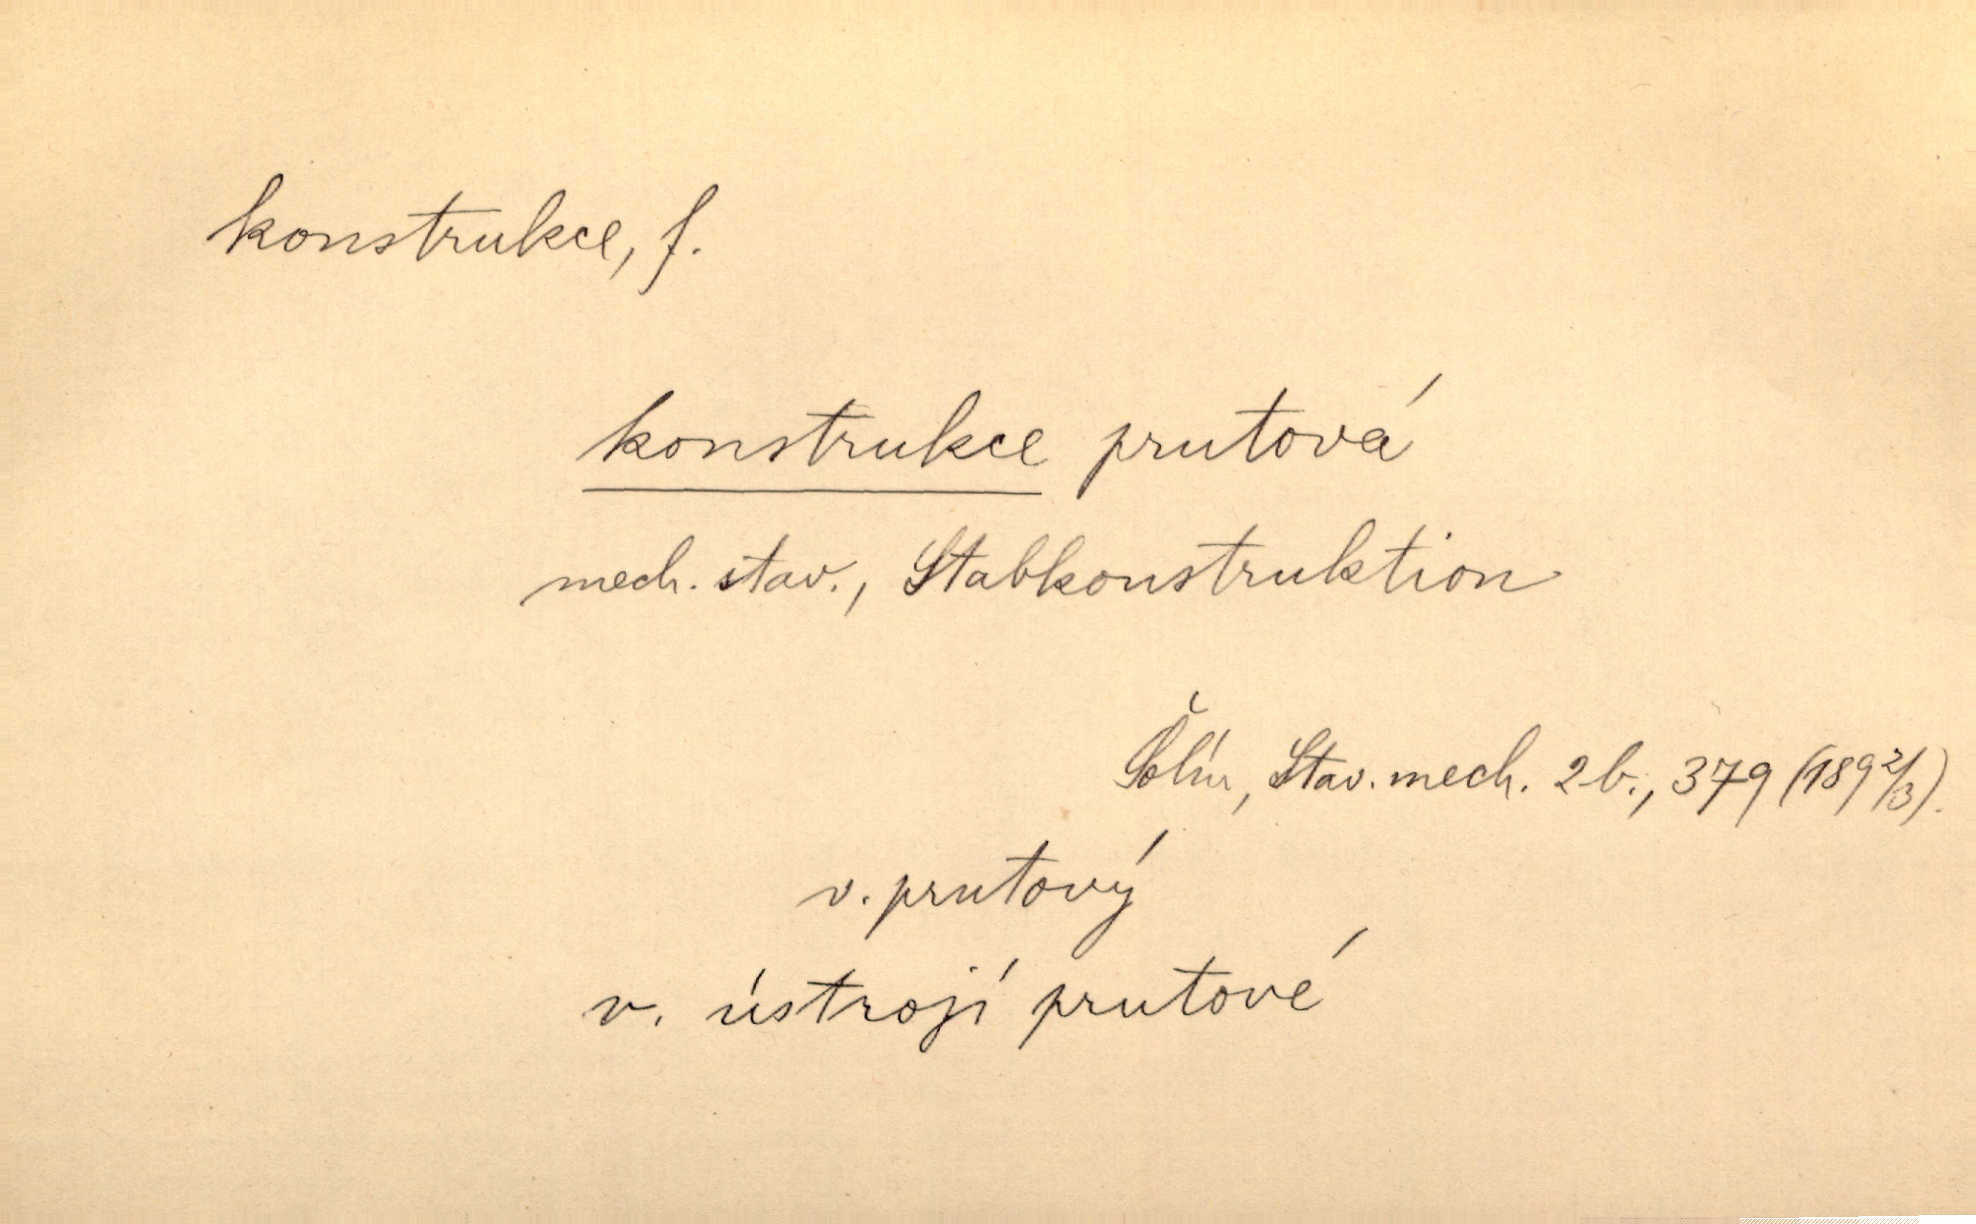 konstrukce, f.
konstrukce prutová
mech. stav., Stabkonstruktion
Šolín, Stav. mech. 2b., 379 (1892/3).
v. prutový
v. ústrojí prutové